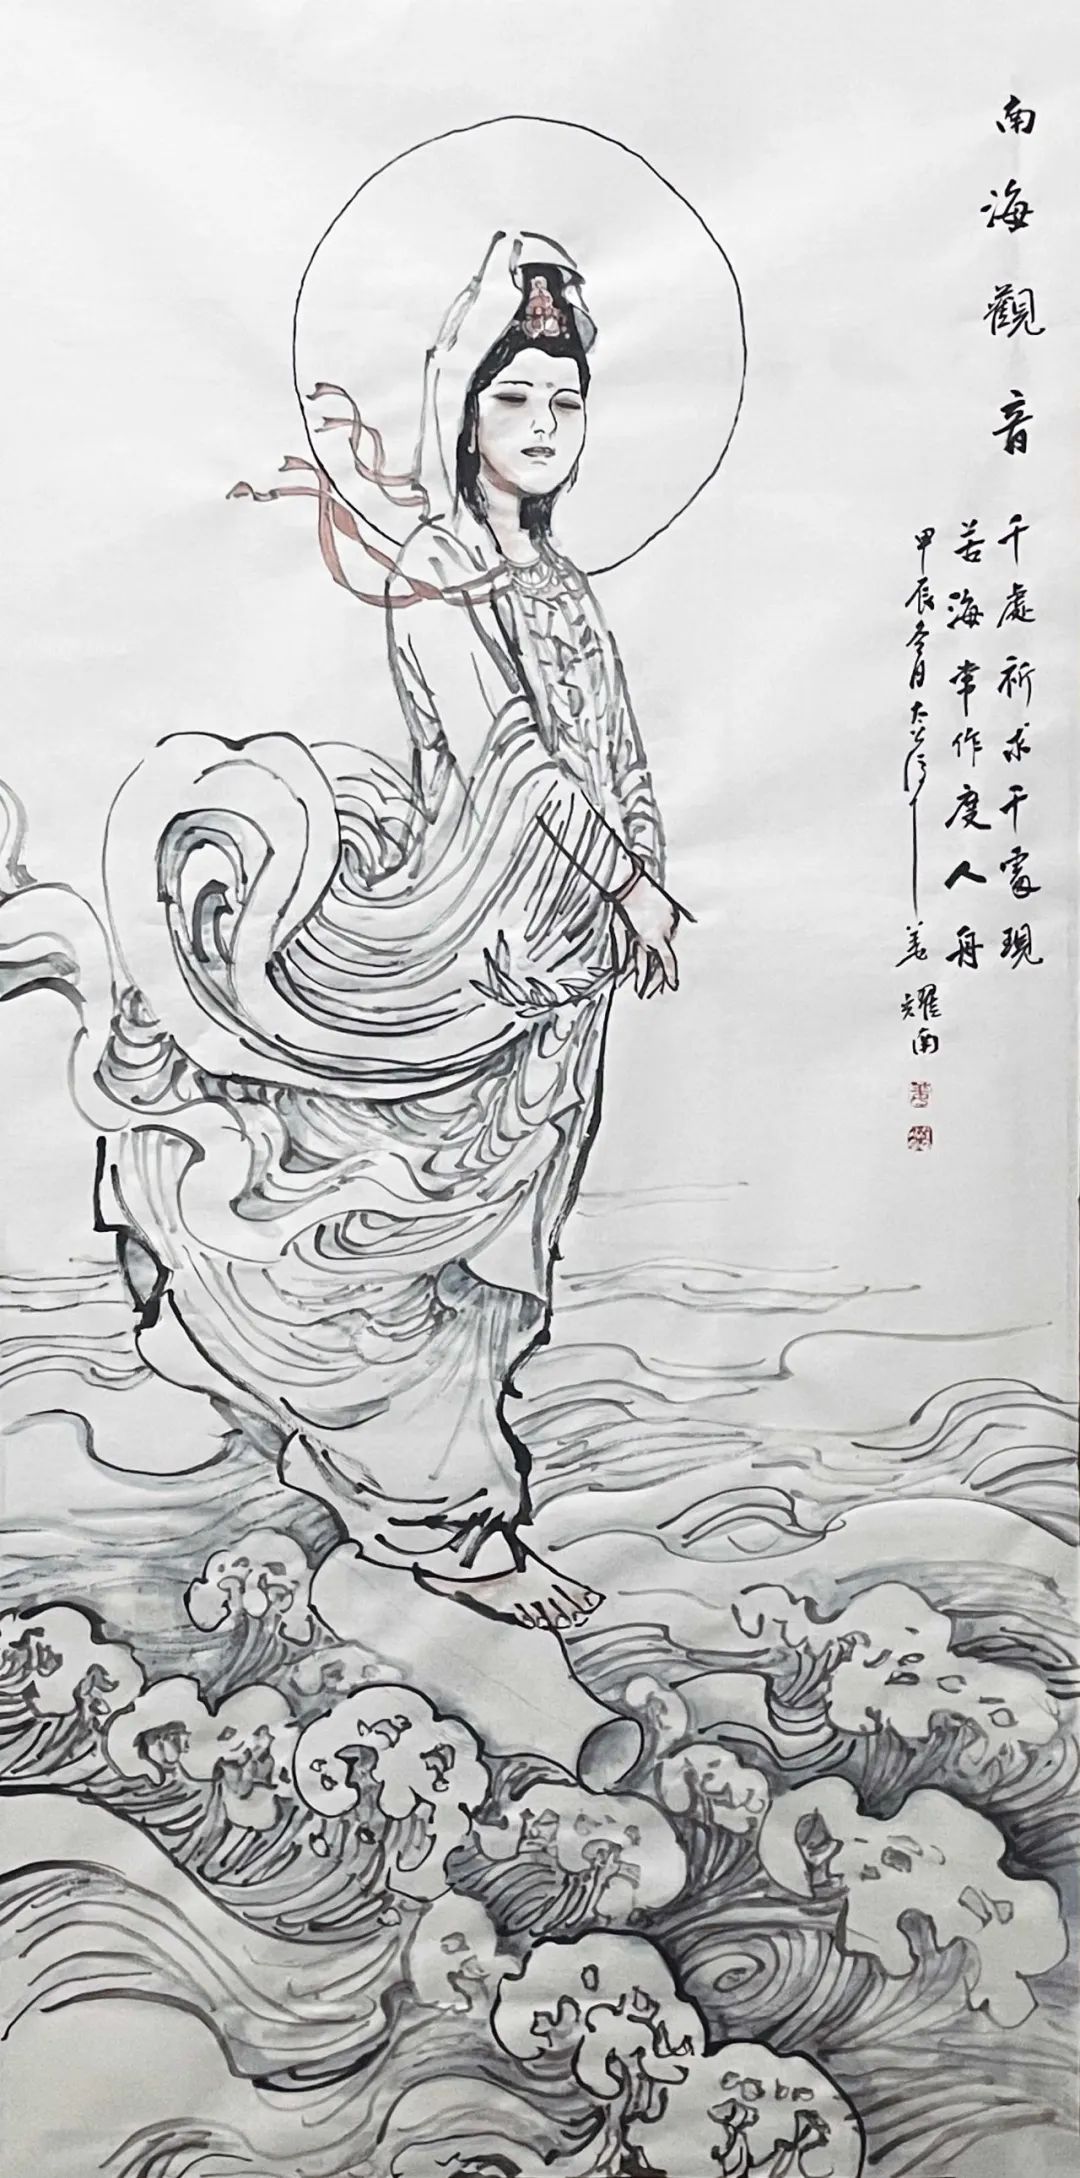 南海觀音
千處祈求千處現
苦海常作度人舟
甲辰冬月太公 姜耀南